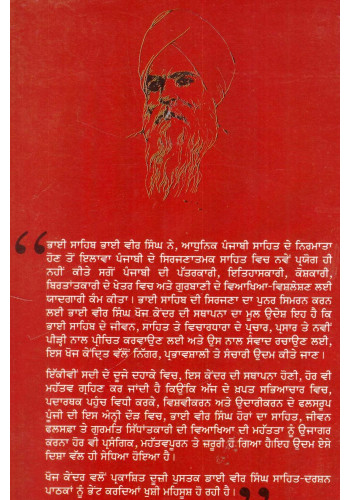 “ਭਾਈ ਸਾਹਿਬ ਭਾਈ ਵੀਰ ਸਿੰਘ ਨੇ, ਆਧੁਨਿਕ ਪੰਜਾਬੀ ਸਾਹਿਤ ਦੇ ਨਿਰਮਾਤਾ
ਹੋਣ ਤੋਂ ਇਲਾਵਾ ਪੰਜਾਬੀ ਦੇ ਸਿਰਜਣਾਤਮਕ ਸਾਹਿਤ ਵਿਚ ਨਵੇਂ ਪ੍ਰਯੋਗ ਹੀ
ਨਹੀਂ ਕੀਤੇ ਸਗੋਂ ਪੰਜਾਬੀ ਦੀ ਪੱਤਰਕਾਰੀ, ਇਤਿਹਾਸਕਾਰੀ, ਕੋਸ਼ਕਾਰੀ,
ਬਿਰਤਾਂਤਕਾਰੀ ਦੇ ਖੇਤਰ ਵਿਚ ਅਤੇ ਗੁਰਬਾਣੀ ਦੇ ਵਿਆਖਿਆ-ਵਿਸ਼ਲੇਸ਼ਣ ਲਈ
ਯਾਦਗਾਰੀ ਕੰਮ ਕੀਤਾ। ਭਾਈ ਸਾਹਿਬ ਦੀ ਸਿਰਜਣਾ ਦਾ ਪੁਨਰ ਸਿਮਰਨ ਕਰਨ
ਲਈ ਭਾਈ ਵੀਰ ਸਿੰਘ ਖੋਜ ਕੇਂਦਰ ਦੀ ਸਥਾਪਨਾ ਦਾ ਮੂਲ ਉਦੇਸ਼ ਇਹ ਹੈ ਕਿ
ਭਾਈ ਸਾਹਿਬ ਦੇ ਜੀਵਨ, ਸਾਹਿਤ ਤੇ ਵਿਚਾਰਧਾਰਾ ਦੇ ਪ੍ਰਚਾਰ, ਪ੍ਰਸਾਰ ਤੇ ਨਵੀਂ
ਪੀੜ੍ਹੀ ਨਾਲ ਪ੍ਰੀਚਿਤ ਕਰਵਾਉਣ ਲਈ ਅਤੇ ਉਸ ਨਾਲ ਸੰਵਾਦ ਰਚਾਉਣ ਲਈ,
ਇਸ ਖੋਜ ਕੇਂਦ੍ਰਿਤ ਵੱਲੋਂ ਨਿੱਗਰ, ਪ੍ਰਭਾਵਸ਼ਾਲੀ ਤੇ ਸੰਚਾਰੀ ਉਦਮ ਕੀਤੇ ਜਾਣ।
ਇੱਕੀਵੀਂ ਸਦੀ ਦੇ ਦੂਜੇ ਦਹਾਕੇ ਵਿਚ, ਇਸ ਕੇਂਦਰ ਦੀ ਸਥਾਪਨਾ ਹੋਣੀ, ਹੋਰ ਵੀ
ਮਹੱਤਵ ਗ੍ਰਹਿਣ ਕਰ ਜਾਂਦੀ ਹੈ ਕਿਉਂਕਿ ਅੱਜ ਦੇ ਖ਼ਪਤ ਸਭਿਆਚਾਰ ਵਿਚ,
ਪਦਾਰਥਕ ਪਹੁੰਚ ਵਿਧੀ ਕਰਕੇ, ਵਿਸ਼ਵੀਕਰਨ ਅਤੇ ਉਦਾਰੀਕਰਨ ਦੇ ਫਲਸਰੂਪ
ਪੂੰਜੀ ਦੀ ਇਸ ਅੰਨ੍ਹੀ ਦੌੜ ਵਿਚ, ਭਾਈ ਵੀਰ ਸਿੰਘ ਹੋਰਾਂ ਦਾ ਸਾਹਿਤ, ਜੀਵਨ
ਫਲਸਫਾ ਤੇ ਗੁਰਮਤਿ ਸਿਧਾਂਤਕਾਰੀ ਦੀ ਵਿਆਖਿਆ ਦੀ ਮਹੱਤਤਾ ਨੂੰ ਉਜਾਗਰ
ਕਰਨਾ ਹੋਰ ਵੀ ਪ੍ਰਸੰਗਿਕ, ਮਹੱਤਵਪੂਰਨ ਤੇ ਜ਼ਰੂਰੀ ਹੋ ਗਿਆ ਹੈ।ਇਹ ਉਦਮ ਏਸੇ
ਦਿਸ਼ਾ ਵੱਲ ਹੀ ਸੇਧਿਆ ਹੋਇਆ ਹੈ।
ਖੋਜ ਕੇਂਦਰ ਵਲੋਂ ਪ੍ਰਕਾਸ਼ਿਤ ਦੂਜੀ ਪੁਸਤਕ ਡਾਈ ਵੀਰ ਸਿੰਘ ਸਾਹਿਤ-ਦਰਸ਼ਨ
ਪਾਠਕਾਂ ਨੂੰ ਭੇਂਟ ਕਰਦਿਆਂ ਖੁਸ਼ੀ ਮਹਿਸੂਸ ਹੋ ਰਹੀ ਹੈ।”